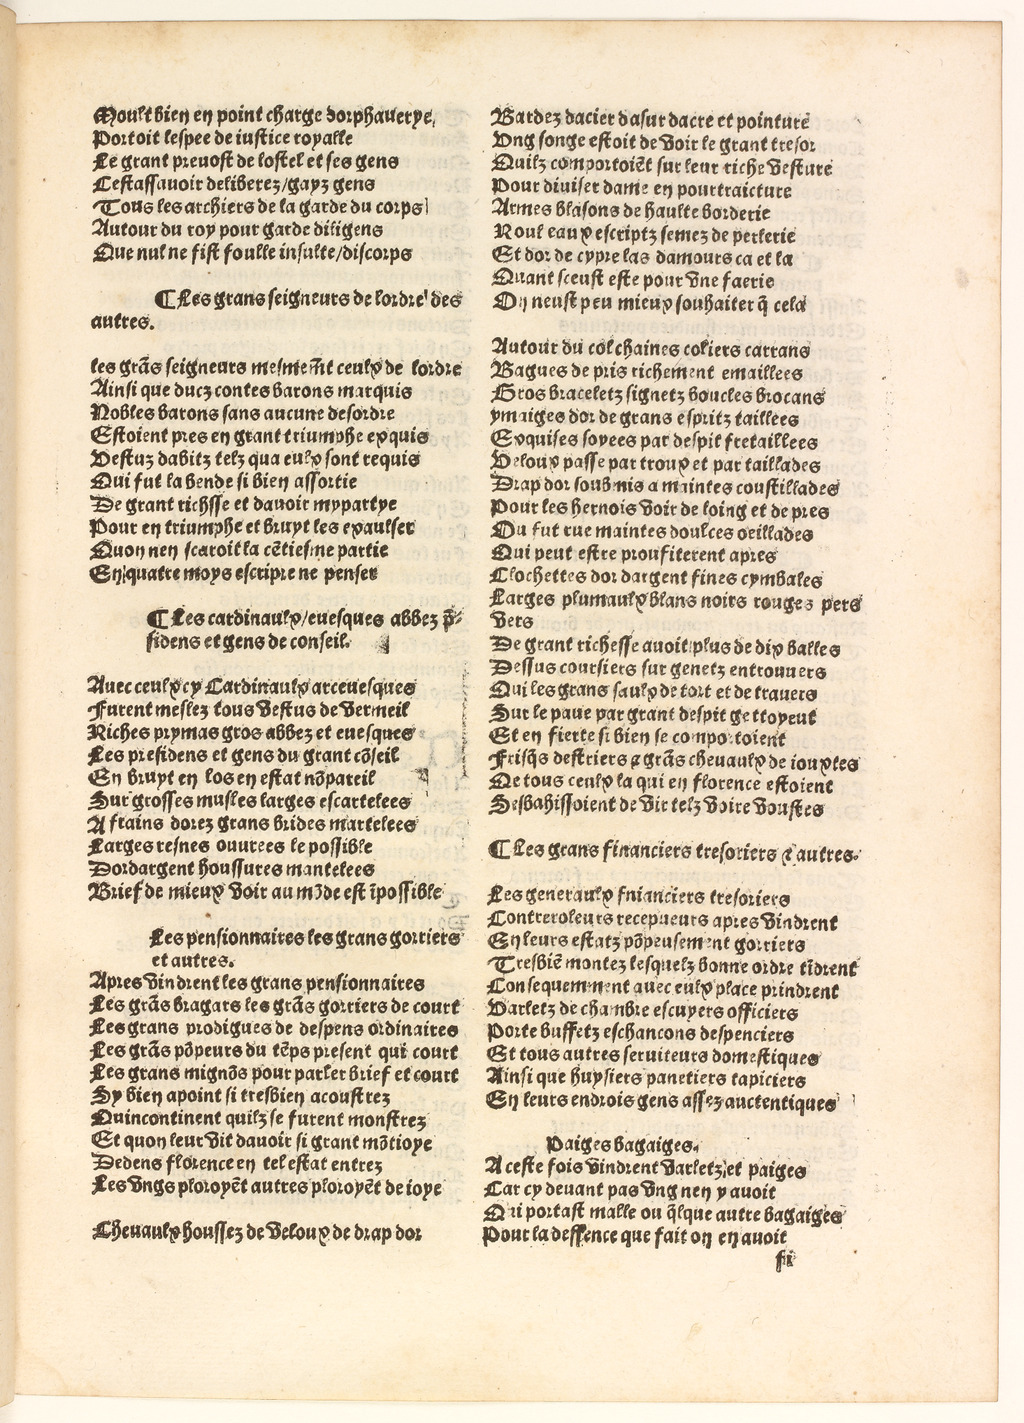 Moult bien en point charge dorphauerye,
Portoit lespee de iustice royalle
Le grant preuost de lostel et ses gens
Cestassauoir deliberez/gayz gens
Tous les archiers de la garde du corps
Autour du roy pour garde diligens
Que nul ne fist foulle insulte/discorps
¶ Les grans seigneurs de lordre des
autres.
les grãs seigneurs mesmemẽt ceulx de lordre
Ainsi que ducz contes barons marquis
Nobles barons sans aucune desordre
Estoient pres en grant triumphe exquis
Vestuz dabitz telz qua eulx sont requis
Qui fut la bende si bien assortie
De grant richsse et dauoir mypartye
Pour en triumphe et bruyt les exaulser
Quon nen scaroit la cẽtiesme partie
En quatre moys escripre ne penser
¶ Les cardinaulx/euesques abbez p̃-
sidens et gens de conseil.
Auec ceulx cy Cardinaulx arceuesques
Furent meslez tous vestus de vermeil
Riches prymas gros abbez et euesques
Les presidens et gens du grant cõseil
En bruyt en los en estat nõpareil
Sur grosses mulles larges escartelees
A frains dorez grans brides martelees
Larges resnes ouurees le possible
Dordargent houssures mantelees
Brief de mieux voir au mõde est ĩpossible
Les pensionnaires les grans gorriers
et autres.
Apres vindrent les grans pensionnaires
Les grãs bragars les grãs gorriers de court
Les grans prodigues de despens ordinaires
Les grãs põpeurs du tẽps present qui court
Les grans mignõs pour parler brief et court
Sy bien apoint si tresbien acoustrez
Quincontinent quilz se furent monstrez
Et quon leur vit dauoir si grant mõtioye
Dedens florence en tel estat entrez
Les vngs ploroyẽt autres ploroyẽt de ioye
Cheuaulx houssez de veloux de drap dor
Bardez dacier dasur dacre et pointure
Vng songe estoit de voir le grant tresor
Quilz comportoiẽt sur leur riche vesture
Pour diuiser dame en pourtraicture
Armes blasons de haulte borderie
Roul eaux escriptz semez de perlerie
Et dor de cypre las damours ca et la
Quant sceust este pour vne faerie
On neust peu mieux souhaiter q̃ cela
Autour du col chaines coliers carrans
Bagues de pris richement emaillees
Gros braceletz signetz boucles brocans
ymaiges dor de grans espritz taillees
Exquises soyees par despit fretaillees
Veloux passe par troux et par taillades
Drap dor soubmis a maintes coustillades
Pour les hernois voir de loing et de pres
Ou fut rue maintes doulces oeillades
Qui peut estre proufiterent apres
Clochettes dor dargent fines cymbales
Larges plumaulx blans noirs rouges pers
vers
De grant richesse auoit plus de dix balles
Dessus coursiers sur genetz entrouuers
Qui les grans saulx de tort et de trauers
Sur le paue par grant despit gettoyent
Et en fierte si bien se compo.toient
Frisq̃s destriers & grãs cheuaulx de iouxtes
De tous ceulx la qui en florence estoient
Sesbahissoient de vir telz voire voustes
¶ Les grans financiers tresoriers & autres.
Les generaulx fnianciers tresoriers
Contreroleurs recepueurs apres vindrent
En leurs estatz põpeusement gorriers
Tresbiẽ montez lesquelz bonne ordre tĩdrent
Consequemment auec eulx place prindrent
Varletz de chambre escuyers officiers
Porte buffetz eschancons despenciers
Et tous autres seruiteurs domestiques
Ainsi que huysiers panetiers tapiciers
En leurs endrois gens assez auctentiques
Paiges bagaiges.
A ceste fois vindrent varletz et paiges
Car cy deuant pas vng nen y auoit
Qui portast malle ou q̃lque autre bagaiges
Pour la deffence que fait on en auoit
fi